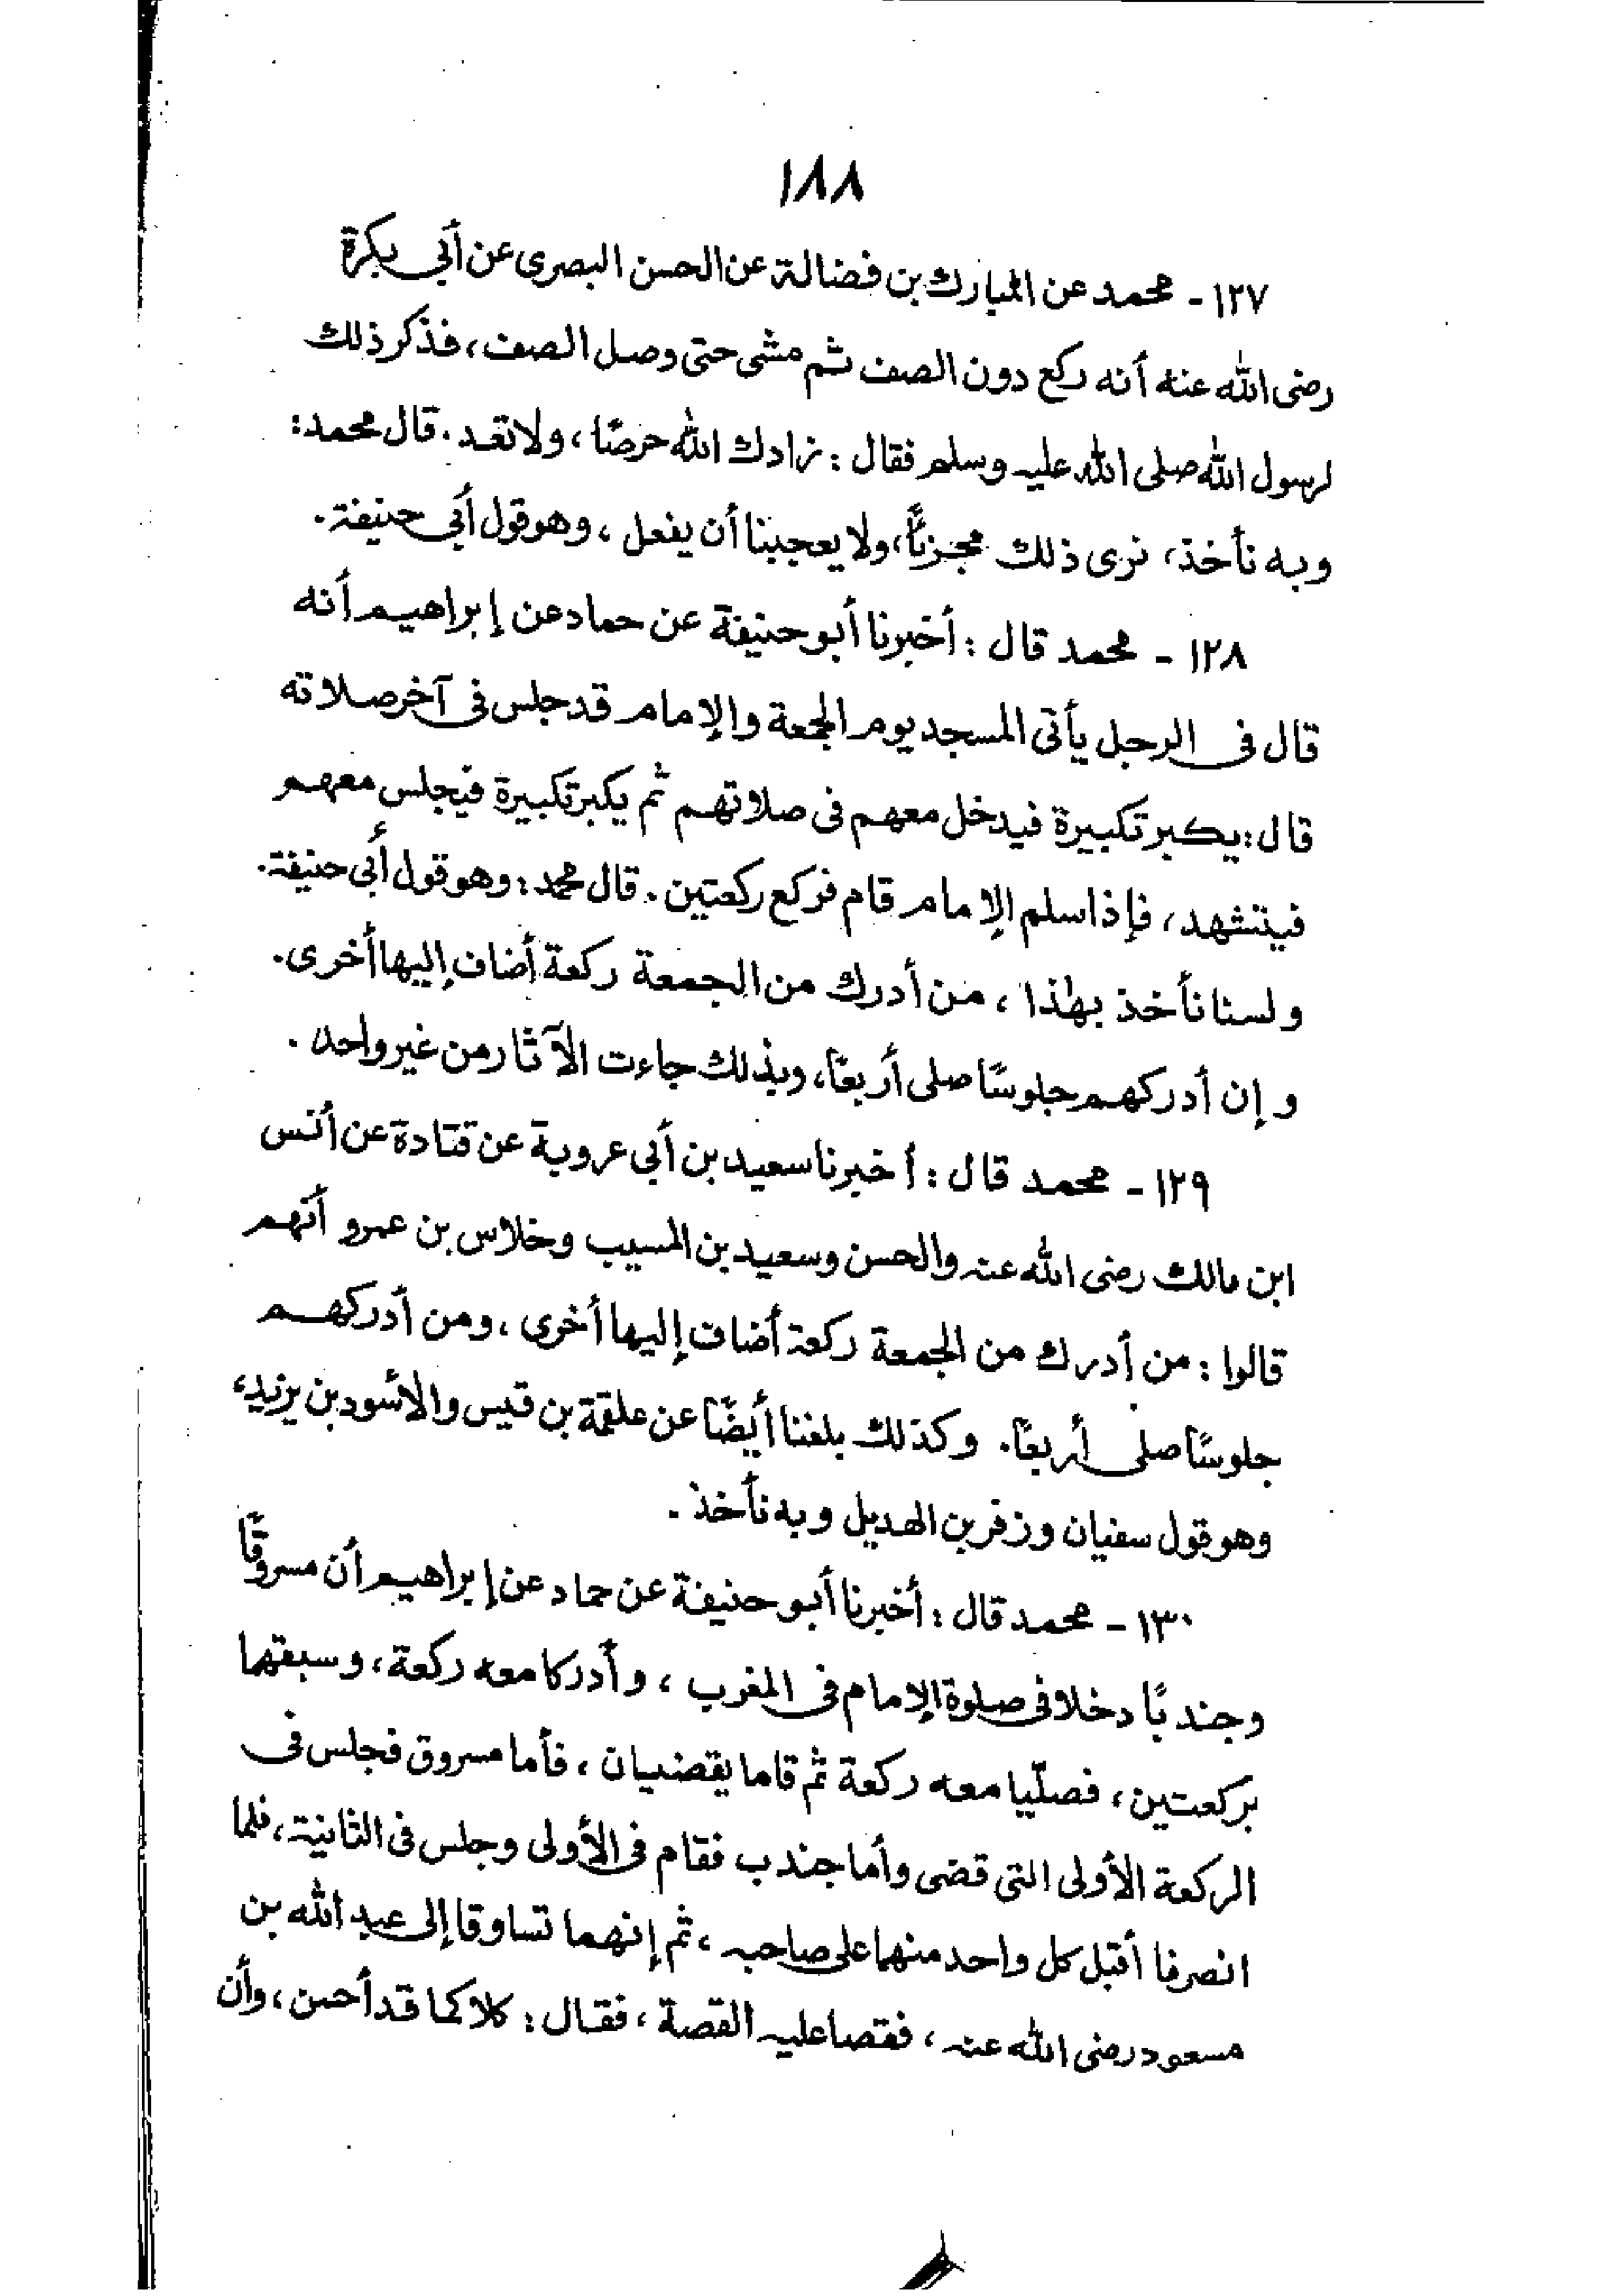 ١٨٨
١٢٧ - محمد عن المبارك بن فضالة عن الحسن البصرى عن أبي بكرة
رضى الله عنه أنه ركع دون الصف ثم مشى حتى وصل الصف، فذكر ذلك
لرسول الله صلى الله عليه وسلم فقال : زادك الله حرصًا، ولا تعد. قال محمد:
وبه نأخذ، نرى ذلك مجزئًا، ولا يعجبنا أن يفعل، وهو قول أبي حنيفة.
١٢٨ - محمد قال : أخبرنا أبو حنيفة عن حماد عن إبراهيم أنه
قال فى الرجل يأتى المسجد يوم الجمعة والإمام قد جلس فى آخر صلاته
قال: يكبر تكبيرة فيدخل معهم فى صلاتهم ثم يكبر تكبيرة فيجلس معهم
فيتشهد، فإذا سلم الإمام قام فركع ركعتين. قال محمد: وهو قول أبى حنيفة.
ولسنا نأخذ بهٰذا، من أدرك من الجمعة ركعة أضاف إليها أخرى.
وإن أدركهم جلوسًا صلى أربعًا، وبذلك جاءت الآثار من غير واحد.
١٢٩ - محمد قال : أخبرنا سعيد بن أبي عروبة عن قتادة عن أنس
ابن مالك رضى الله عنه والحسن وسعيد بن المسيب وخلاس بن عمرو أنهم
قالوا : من أدرك من الجمعة ركعة أضاف إليها أخرى، ومن أدركهم
جلوسًا صلى أربعًا. وكذلك بلغنا أيضًا عن علقمة بن قيس والأسود بن يزيد،
وهو قول سفيان وزفر بن الهديل وبه نأخذ.
١٣٠ - محمد قال : أخبرنا أبو حنيفة عن حماد عن إبراهيم أن مسروقًا
وجندبًا دخلا فى صلوة الإمام فى المغرب، وأدركا معه ركعة، وسبقهما
بركعتين، فصلّيا معه ركعة ثم قاما يقضيان، فأما مسروق فجلس فى
الركعة الأولى التى قضى وأما جندب فقام فى الأولى وجلس فى الثانية، فلما
انصرفا أقبل كل واحد منهما على صاحبه، ثم إنهما تساوقا إلى عبد الله بن
مسعود رضى الله عنه، فقصا عليه القصة، فقال : كلاكما قد أحسن، وأن